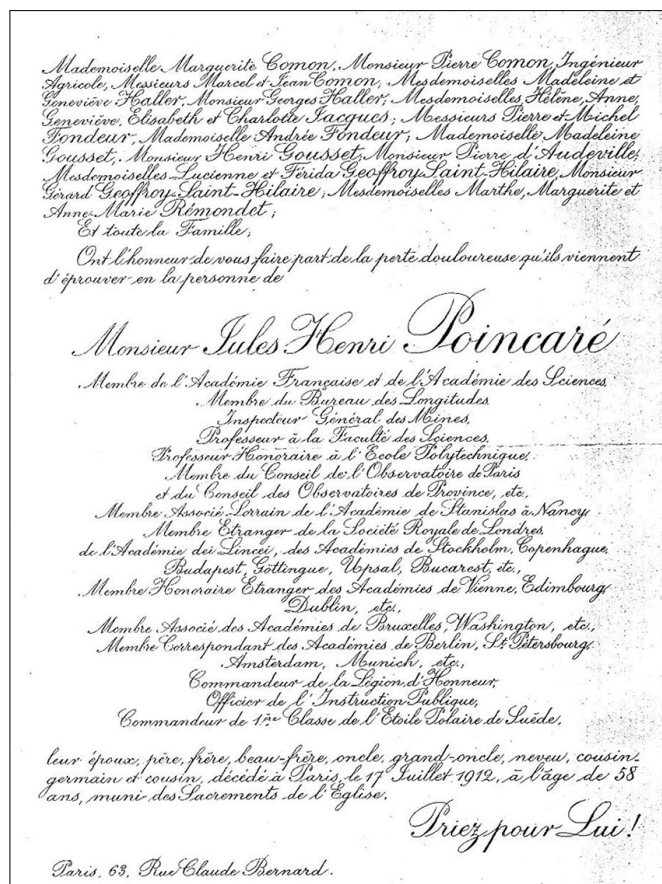 Mademoiselle Marguerite Comon, Monsieur Pierre Comon, Ingénieur
Agricole, Messieurs Marcel et Jean Comon; Mesdemoiselles Madeleine et
Geneviève Haller, Monsieur Georges Haller; Mesdemoiselles Hélène, Anne,
Geneviève, Elisabeth et Charlotte Jacques; Messieurs Pierre et Michel
Fondeur, Mademoiselle Andrée Fondeur; Mademoiselle Madeleine
Gousset, Monsieur Henri Gousset; Monsieur Pierre d'Audeville;
Mesdemoiselles Lucienne et Férida Geoffroy Saint-Hilaire, Monsieur
Gérard Geoffroy Saint-Hilaire; Mesdemoiselles Marthe, Marguerite et
Anne-Marie Rémondet;
Et toute la Famille;
Ont l'honneur de vous faire part de la perte douloureuse qu'ils viennent
d'éprouver en la personne de
Monsieur Jules Henri Poincaré
Membre de l'Académie Française et de l'Académie des Sciences,
Membre du Bureau des Longitudes,
Inspecteur Général des Mines,
Professeur à la Faculté des Sciences,
Professeur Honoraire à l'Ecole Polytechnique,
Membre du Conseil de l'Observatoire de Paris
et du Conseil des Observatoires de Province, etc,
Membre Associé Lorrain de l'Académie de Stanislas à Nancy,
Membre Etranger de la Société Royale de Londres,
de l'Académie dei Lincei, des Académies de Stockholm, Copenhague,
Budapest, Göttingue, Upsal, Bucarest, etc.,
Membre Honoraire Etranger des Académies de Vienne, Edimbourg,
Dublin, etc.,
Membre Associé des Académies de Bruxelles, Washington, etc.,
Membre Correspondant des Académies de Berlin, St Pétersbourg,
Amsterdam, Munich, etc.,
Commandeur de la Légion d'Honneur,
Officier de l'Instruction Publique,
Commandeur de 1ère Classe de l'Etoile Polaire de Suède,
leur époux, père, frère, beau-frère, oncle, grand-oncle, neveu, cousin-
germain et cousin, décédé à Paris, le 17 Juillet 1912, à l'âge de 58
ans, muni des Sacrements de l'Eglise.
Priez pour Lui!
Paris, 63, Rue Claude Bernard.